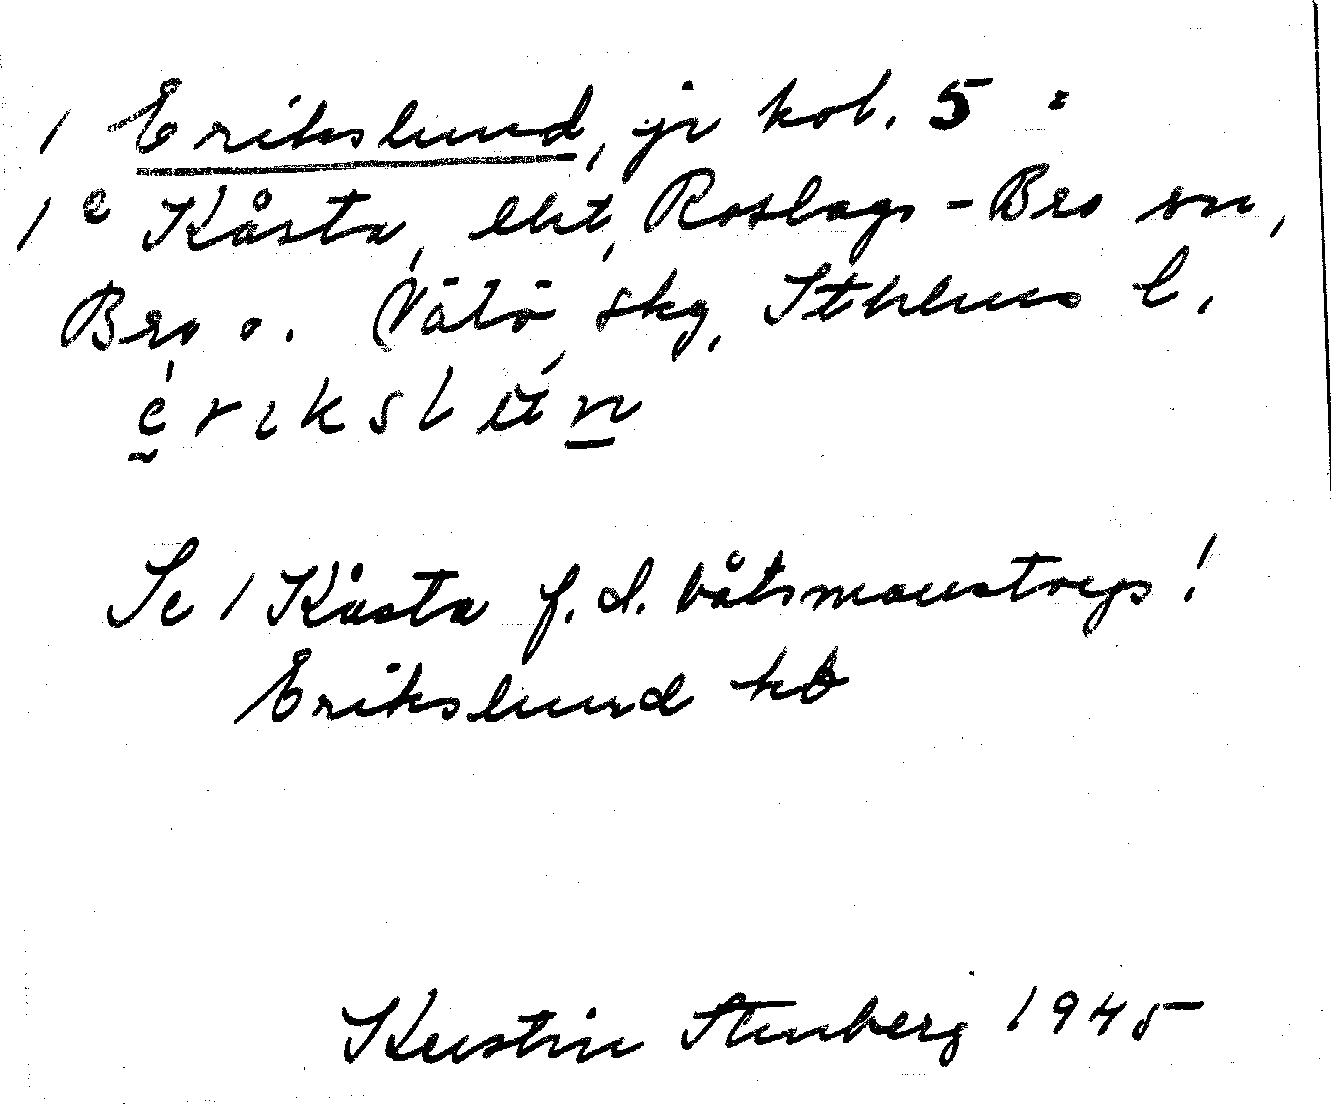 1 Erikslund, jr kol. 5 :
1 e Kårsta, ekt, Roslags-Bro sn,
Bro o. Vätö skg, Sthlms l.
erikslun
Se 1 Kårsta f.d. båtsmanstorp!
Erikslund kb
Kerstin Stenberg 1945